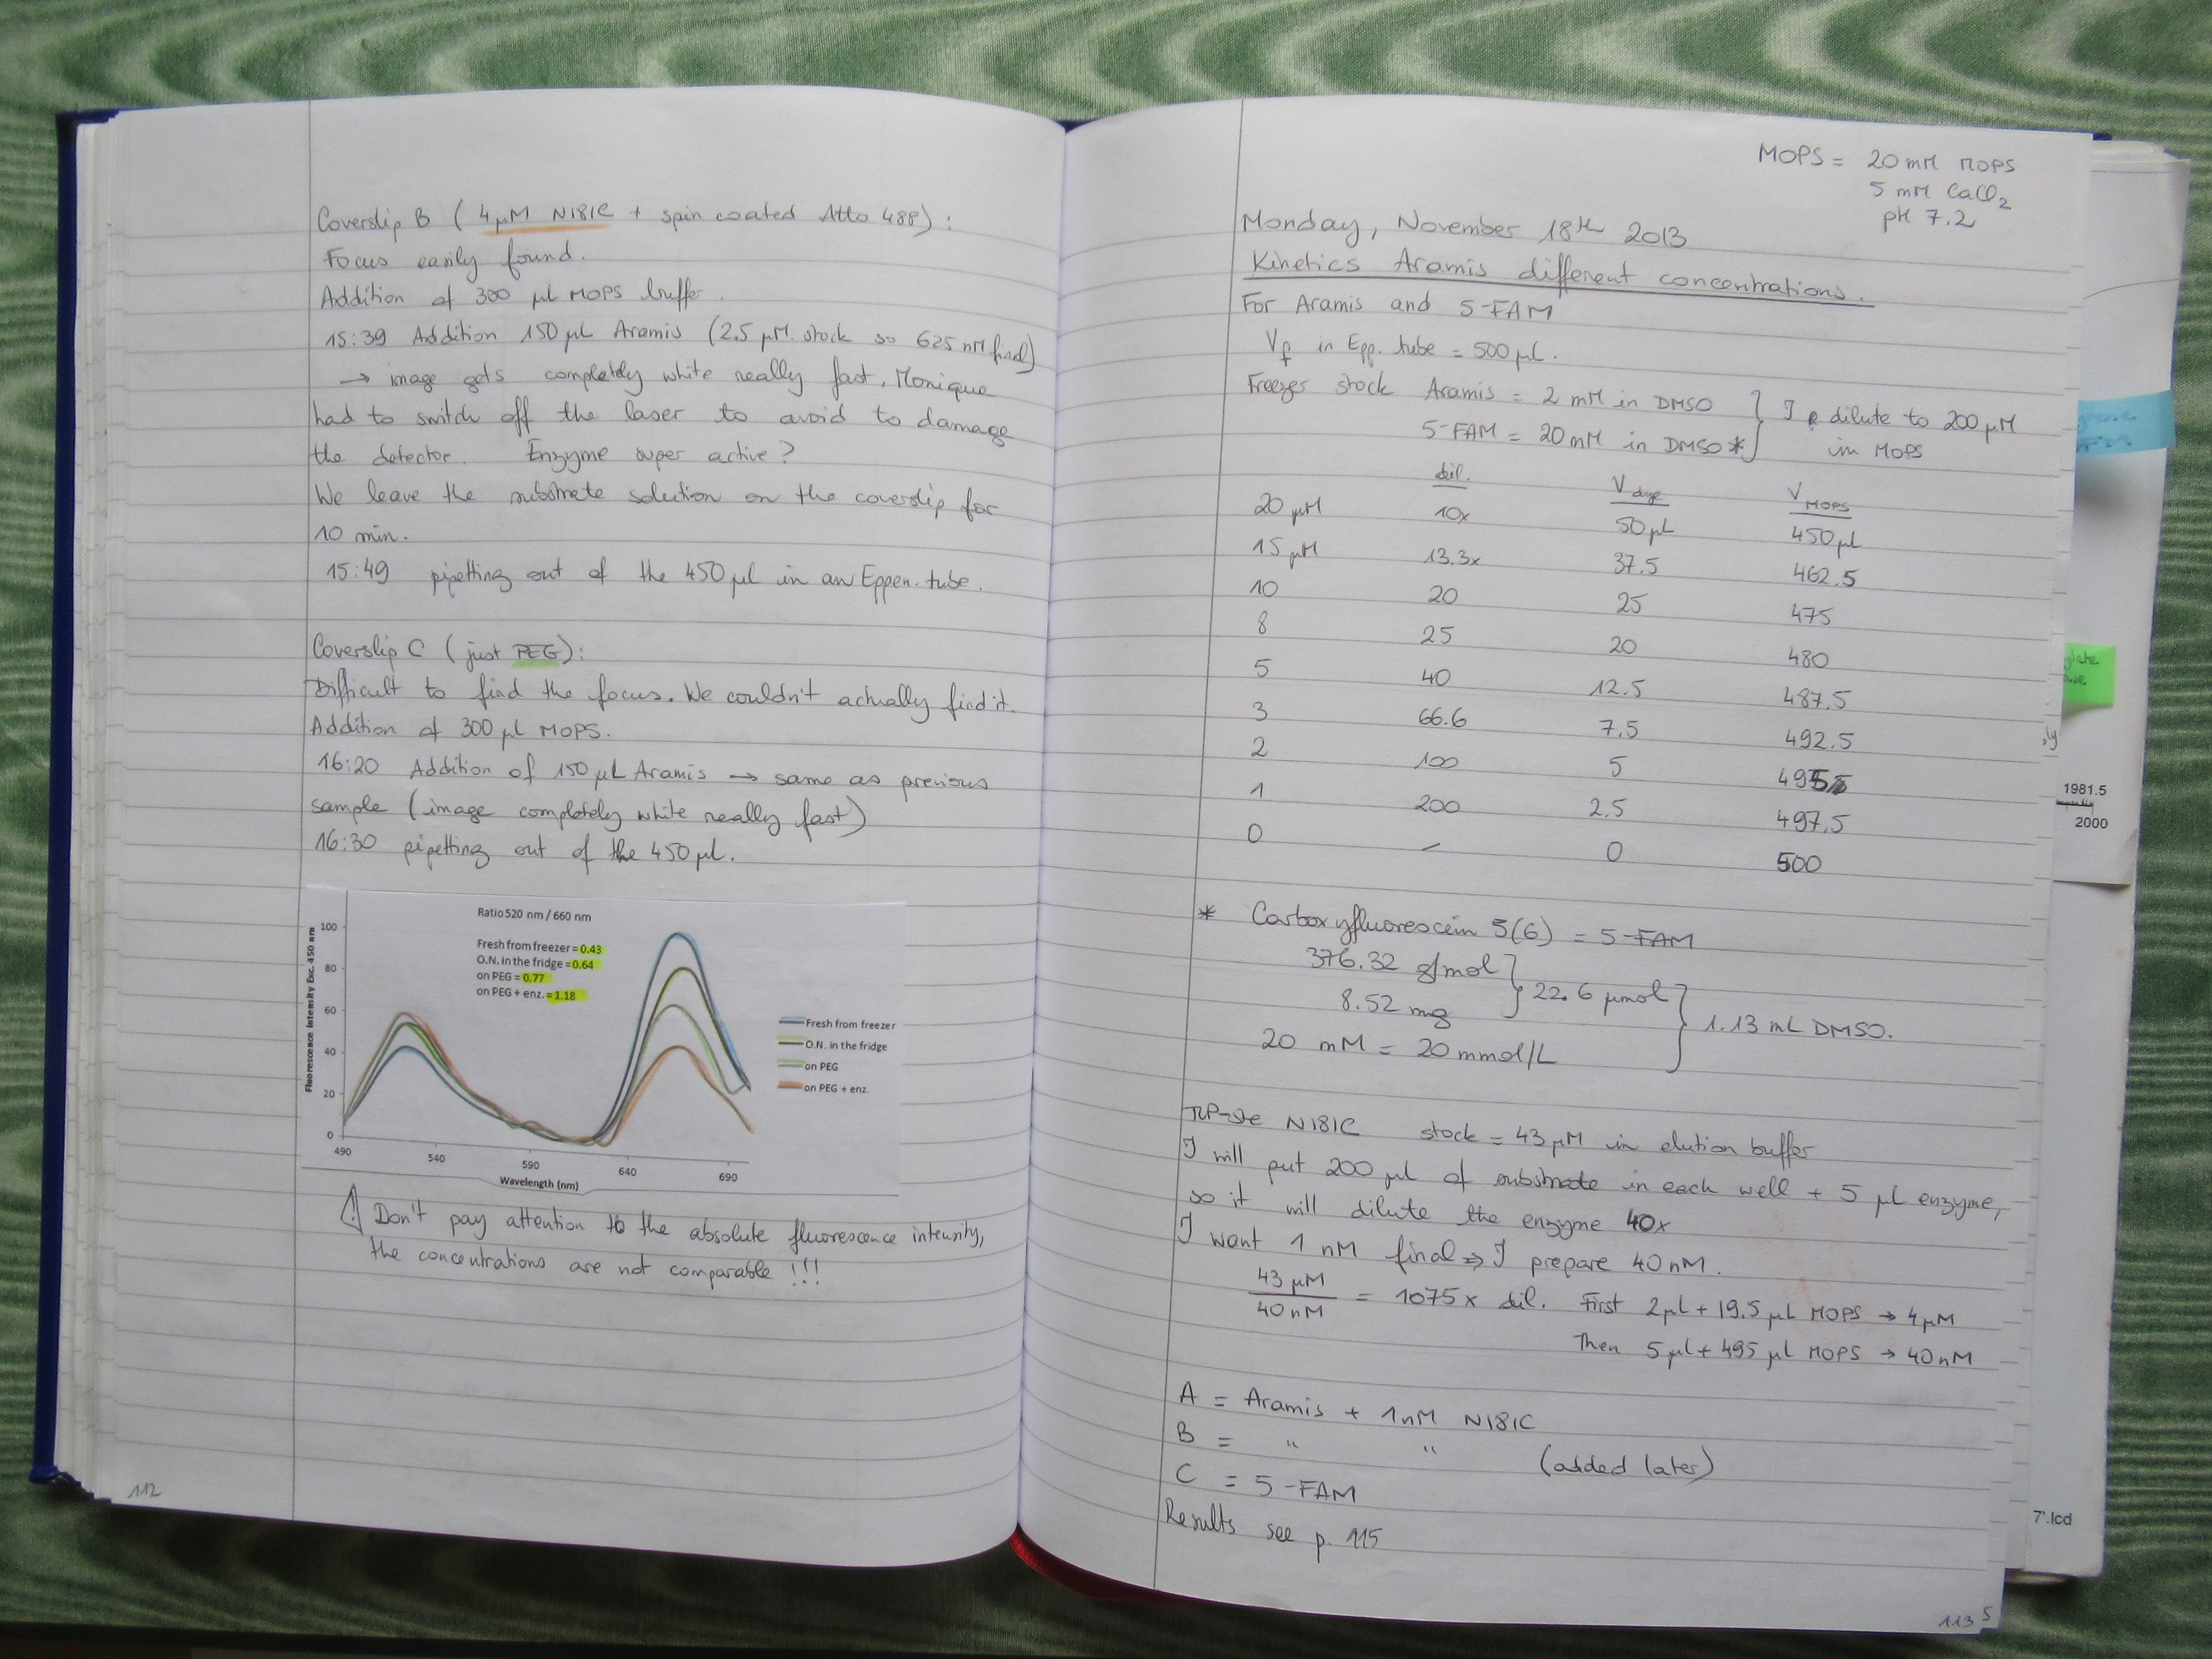 Coverslip B (4 µM N181C + spin coated Atto 488):
Focus easily found.
Addition of 300 µl MOPS buffer.
15:39 Addition 150 µl Aramis (2.5 µM stock so 625 nM final)
→ image gets completely white really fast, Monique
had to switch off the laser to avoid to damage
the detector. Enzyme super active?
We leave the substrate solution on the coverslip for
10 min.
15:49 pipetting out of the 450 µl in an Eppen. tube.
Coverslip C (just PEG):
Difficult to find the focus. We couldn't actually find it.
Addition of 300 µl MOPS.
16:20 Addition of 150 µL Aramis → same as previous
sample (image completely white really fast)
16:30 pipetting out of the 450 µl.
Ratio 520 nm / 660 nm
Fresh from freezer = 0.43
O.N. in the fridge = 0.64
on PEG = 0.77
on PEG + enz. = 1.18
Fluorescence Intensity Exc. 450 nm
100
80
60
40
20
0
490 540 590 640 690
Wavelength (nm)
Fresh from freezer
O.N. in the fridge
on PEG
on PEG + enz.
! Don't pay attention to the absolute fluorescence intensity,
the concentrations are not comparable !!!
112
MOPS = 20 mM MOPS
5 mM CaCl2
pH 7.2
Monday, November 18th 2013
Kinetics Aramis different concentrations.
For Aramis and 5-FAM
Vf in Epp. tube = 500 µL.
Freezer stock Aramis = 2 mM in DMSO } I dilute to 200 µM
5-FAM = 20 mM in DMSO * } in MOPS
dil. V dye V MOPS
20 µM 10x 50 µL 450 µl
15 µM 13.3x 37.5 462.5
10 20 25 475
8 25 20 480
5 40 12.5 487.5
3 66.6 7.5 492.5
2 100 5 495
1 200 2.5 497.5
0 – 0 500
* Carboxyfluorescein 5(6) = 5-FAM
376.32 g/mol } 22.6 µmol } 1.13 mL DMSO.
8.52 mg
20 mM = 20 mmol/L
N181C stock = 43 µM in elution buffer
I will put 200 µl of substrate in each well + 5 µl enzyme,
so it will dilute the enzyme 40x
I want 1 nM final ⇒ I prepare 40 nM.
43 µM / 40 nM = 1075 x dil. First 2 µl + 19.5 µL MOPS → 4 µM
Then 5 µl + 495 µl MOPS → 40 nM
A = Aramis + 1 nM N181C
B = " " (added later)
C = 5-FAM
Results see p. 115
113
5
1981.5
2000
7'.lcd